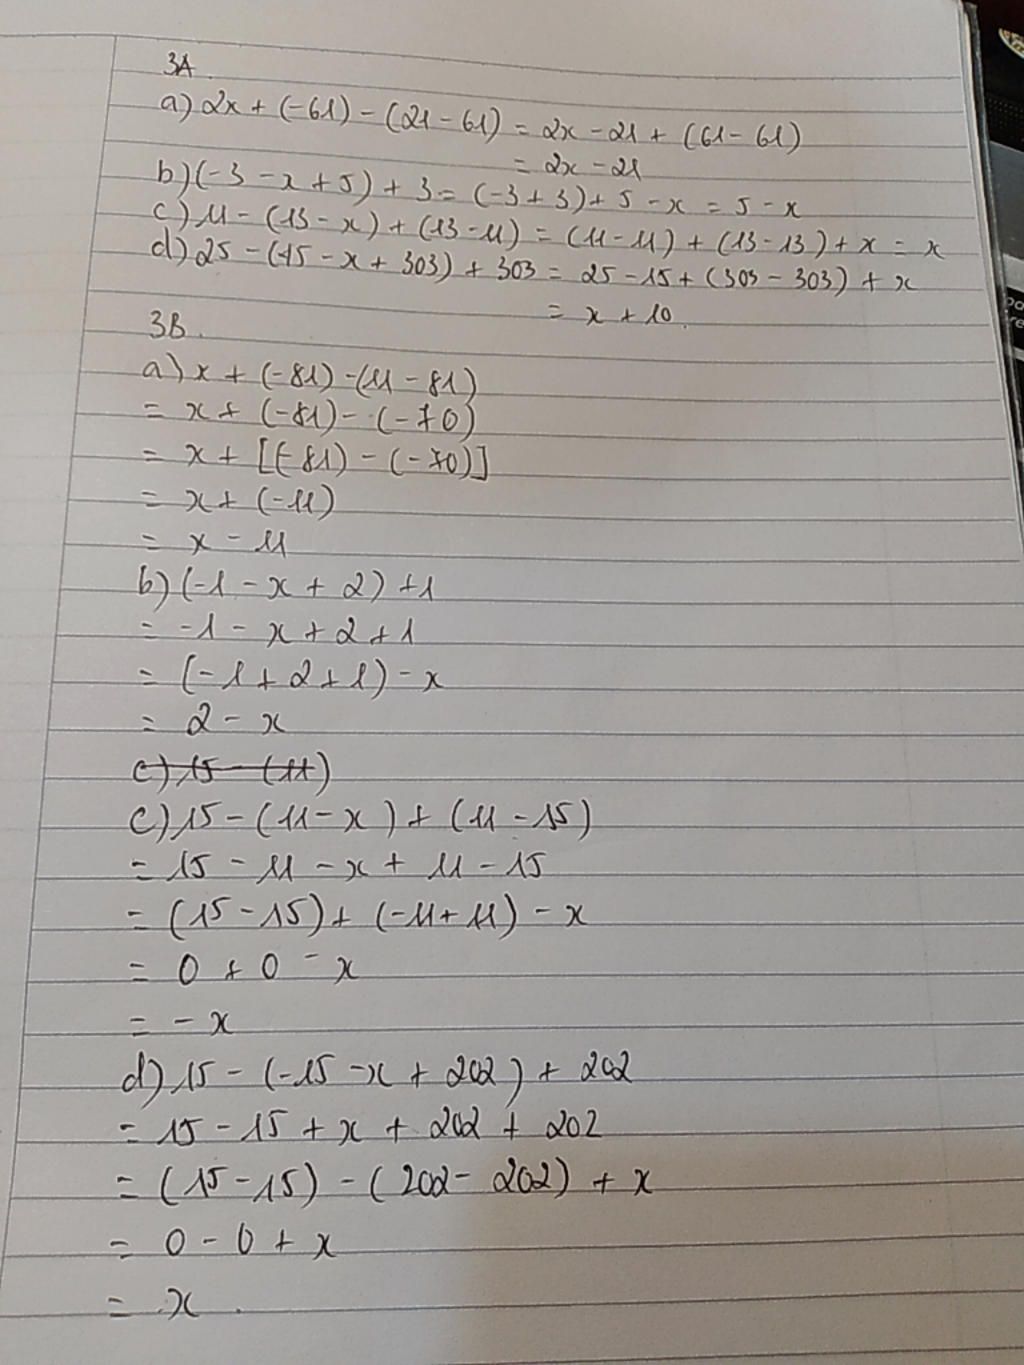 3A.
a) 2x + (-61) - (21 - 61) = 2x - 21 + (61 - 61)
= 2x - 21
b) (-3 - x + 5) + 3 = (-3 + 3) + 5 - x = 5 - x
c) 11 - (13 - x) + (13 - 11) = (11 - 11) + (13 - 13) + x = x
d) 25 - (15 - x + 303) + 303 = 25 - 15 + (303 - 303) + x
= x + 10.
3B.
a) x + (-81) - (11 - 81)
= x + (-81) - (-70)
= x + [(-81) - (-70)]
= x + (-11)
= x - 11
b) (-1 - x + 2) + 1
= -1 - x + 2 + 1
= (-1 + 2 + 1) - x
= 2 - x
c) 15 - (11)
c) 15 - (11 - x) + (11 - 15)
= 15 - 11 - x + 11 - 15
= (15 - 15) + (-11 + 11) - x
= 0 + 0 - x
= - x
d) 15 - (-15 - x + 202) + 202
= 15 - 15 + x + 202 + 202
= (15 - 15) - (202 - 202) + x
= 0 - 0 + x
= x.